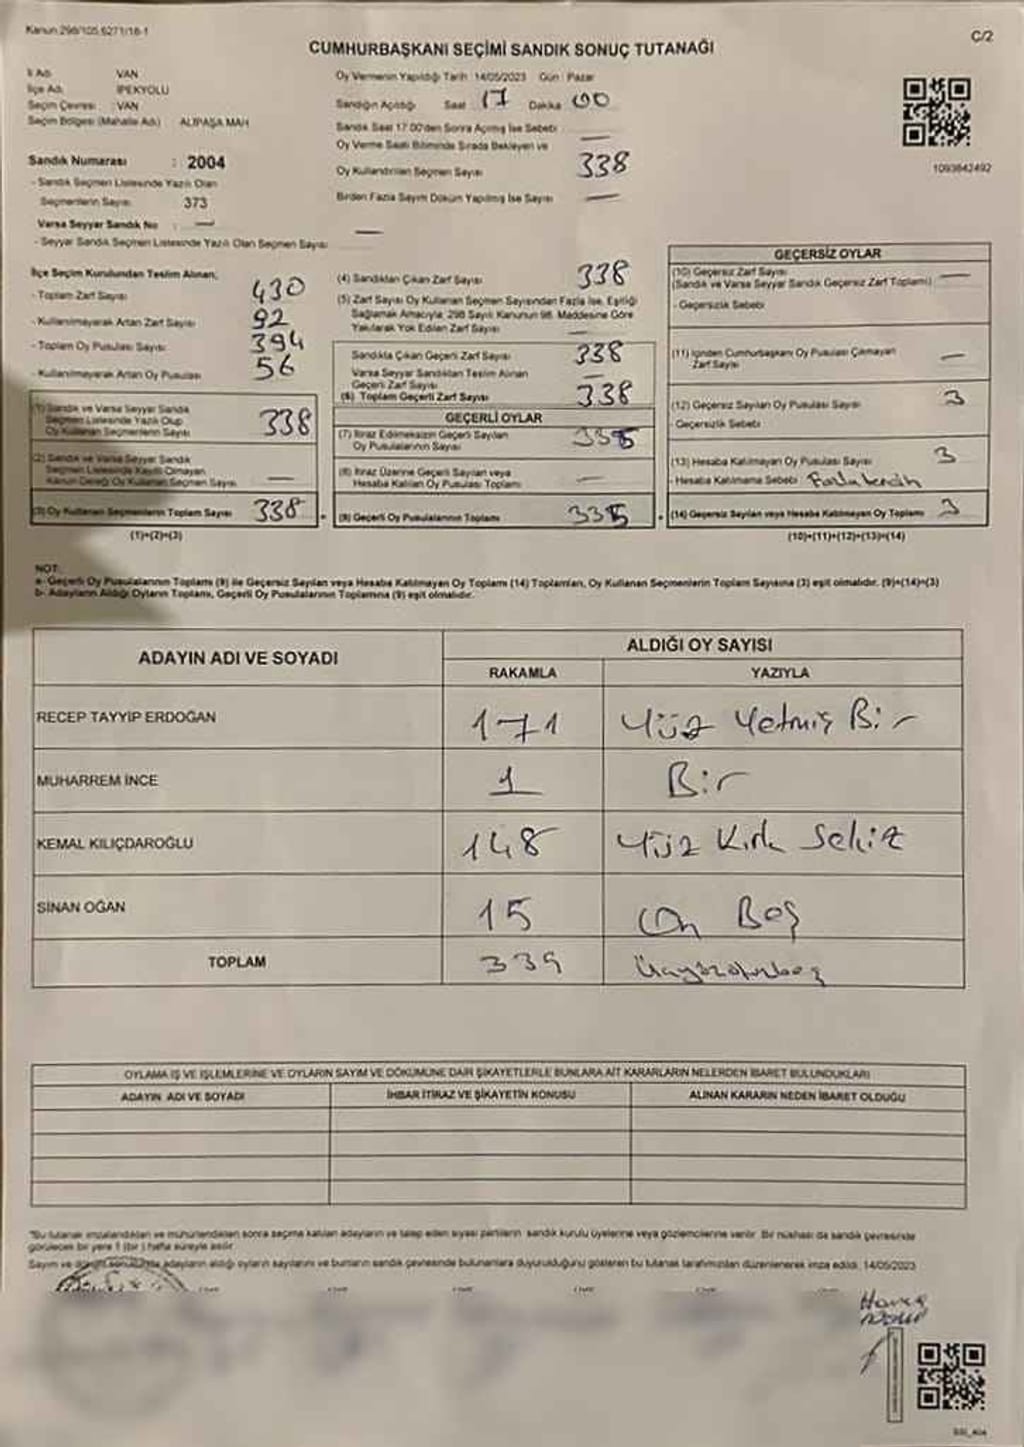 Kanun:298/105,6271/18-1
C/2
CUMHURBAŞKANI SEÇİMİ SANDIK SONUÇ TUTANAĞI
İl Adı VAN
İlçe Adı İPEKYOLU
Seçim Çevresi : VAN
Seçim Bölgesi (Mahalle Adı) ALİPAŞA MAH
Sandık Numarası : 2004
- Sandık Seçmen Listesinde Yazılı Olan
Seçmenlerin Sayısı 373
Varsa Seyyar Sandık No : —
- Seyyar Sandık Seçmen Listesinde Yazılı Olan Seçmen Sayısı —
Oy Vermenin Yapıldığı Tarih : 14/05/2023 Gün : Pazar
Sandığın Açıldığı Saat 17 Dakika 00
Sandık Saat 17.00'den Sonra Açılmış İse Sebebi —
Oy Verme Saati Bitiminde Sırada Bekleyen ve
Oy Kullandırılan Seçmen Sayısı 338
Birden Fazla Sayım Döküm Yapılmış İse Sayısı —
1093842492
İlçe Seçim Kurulundan Teslim Alınan,
- Toplam Zarf Sayısı 430
- Kullanılmayarak Artan Zarf Sayısı 92
- Toplam Oy Pusulası Sayısı 394
- Kullanılmayarak Artan Oy Pusulası 56
(1) Sandık ve Varsa Seyyar Sandık
Seçmen Listesinde Yazılı Olup
Oy Kullanan Seçmenlerin Sayısı 338
(2) Sandık ve Varsa Seyyar Sandık
Seçmen Listesinde Kayıtlı Olmayan
Kanun Gereği Oy Kullanan Seçmen Sayısı —
(3) Oy Kullanan Seçmenlerin Toplam Sayısı 338
(1)+(2)=(3)
(4) Sandıktan Çıkan Zarf Sayısı 338
(5) Zarf Sayısı Oy Kullanan Seçmen Sayısından Fazla İse, Eşitliği
Sağlamak Amacıyla; 298 Sayılı Kanunun 98. Maddesine Göre
Yakılarak Yok Edilen Zarf Sayısı —
Sandıkta Çıkan Geçerli Zarf Sayısı 338
Varsa Seyyar Sandıktan Teslim Alınan
Geçerli Zarf Sayısı —
(6) Toplam Geçerli Zarf Sayısı 338
GEÇERLİ OYLAR
(7) İtiraz Edilmeksizin Geçerli Sayılan
Oy Pusulalarının Sayısı 335
(8) İtiraz Üzerine Geçerli Sayılan veya
Hesaba Katılan Oy Pusulası Toplamı —
(9) Geçerli Oy Pusulalarının Toplamı 335
GEÇERSİZ OYLAR
(10) Geçersiz Zarf Sayısı
(Sandık ve Varsa Seyyar Sandık Geçersiz Zarf Toplamı) —
- Geçersizlik Sebebi
(11) İçinden Cumhurbaşkanı Oy Pusulası Çıkmayan
Zarf Sayısı —
(12) Geçersiz Sayılan Oy Pusulası Sayısı 3
- Geçersizlik Sebebi
(13) Hesaba Katılmayan Oy Pusulası Sayısı 3
- Hesaba Katılmama Sebebi
(14) Geçersiz Sayılan veya Hesaba Katılmayan Oy Toplamı 3
(10)+(11)+(12)+(13)=(14)
NOT:
a- Geçerli Oy Pusulalarının Toplamı (9) ile Geçersiz Sayılan veya Hesaba Katılmayan Oy Toplamı (14) Toplamları, Oy Kullanan Seçmenlerin Toplam Sayısına (3) eşit olmalıdır. (9)+(14)=(3)
b- Adayların Aldığı Oyların Toplamı, Geçerli Oy Pusulalarının Toplamına (9) eşit olmalıdır.
ADAYIN ADI VE SOYADI
ALDIĞI OY SAYISI
RAKAMLA YAZIYLA
RECEP TAYYİP ERDOĞAN 171 Yüz Yetmiş Bir
MUHARREM İNCE 1 Bir
KEMAL KILIÇDAROĞLU 148 Yüz Kırk Sekiz
SİNAN OĞAN 15 On Beş
TOPLAM 335 Üçyüzotuzbeş
OYLAMA İŞ VE İŞLEMLERİNE VE OYLARIN SAYIM VE DÖKÜMÜNE DAİR ŞİKAYETLERLE BUNLARA AİT KARARLARIN NELERDEN İBARET BULUNDUKLARI
ADAYIN ADI VE SOYADI İHBAR İTİRAZ VE ŞİKAYETİN KONUSU ALINAN KARARIN NEDEN İBARET OLDUĞU
*Bu tutanak imzalandıktan ve mühürlendikten sonra seçime katılan adayların ve talep eden siyasi partilerin sandık kurulu üyelerine veya gözlemcilerine verilir. Bir nüshası da sandık çevresinde
görülecek bir yere 1 (bir ) hafta süreyle asılır.
Sayım ve döküm sonucunda adayların aldığı oyların sayılarını ve bunların sandık çevresinde bulunanlara duyurulduğunu gösteren bu tutanak tarafımızdan düzenlenerek imza edildi. 14/05/2023